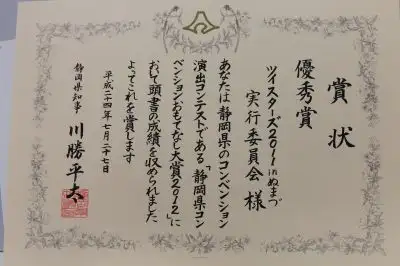 賞状
優秀賞
ツイスターズ2011inぬまづ
実行委員会 様
あなたは静岡県のコンベンション
演出コンテストである「静岡県コン
ベンションおもてなし大賞2012」に
おいて頭書の成績を収められました
よってこれを賞します
平成二十四年七月二十七日
静岡県知事 川勝平太